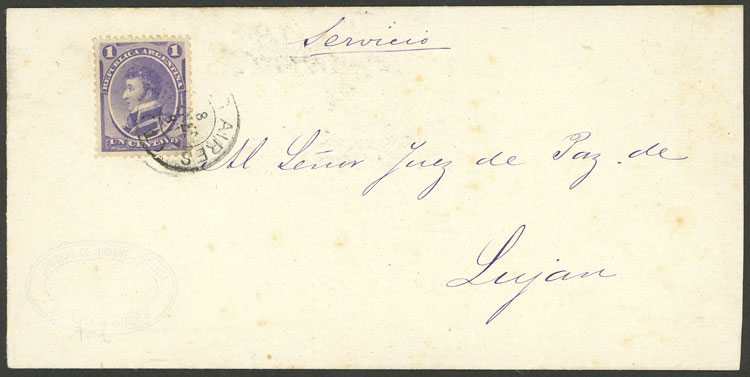 Servicio
1 1
REPUBLICA ARGENTINA
UN CENTAVO
AIRES
8
Al Señor Juez de Paz de
Lujan